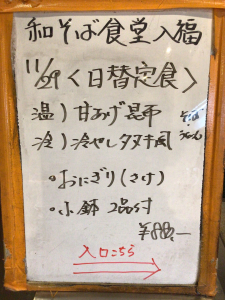 和そば食堂入福
11/29〈日替定食〉
温)甘あげ昆布
冷)冷やしタヌキ風
そば
うどん
。おにぎり(さけ)
。小鉢 2品付
¥880.—
入口こちら